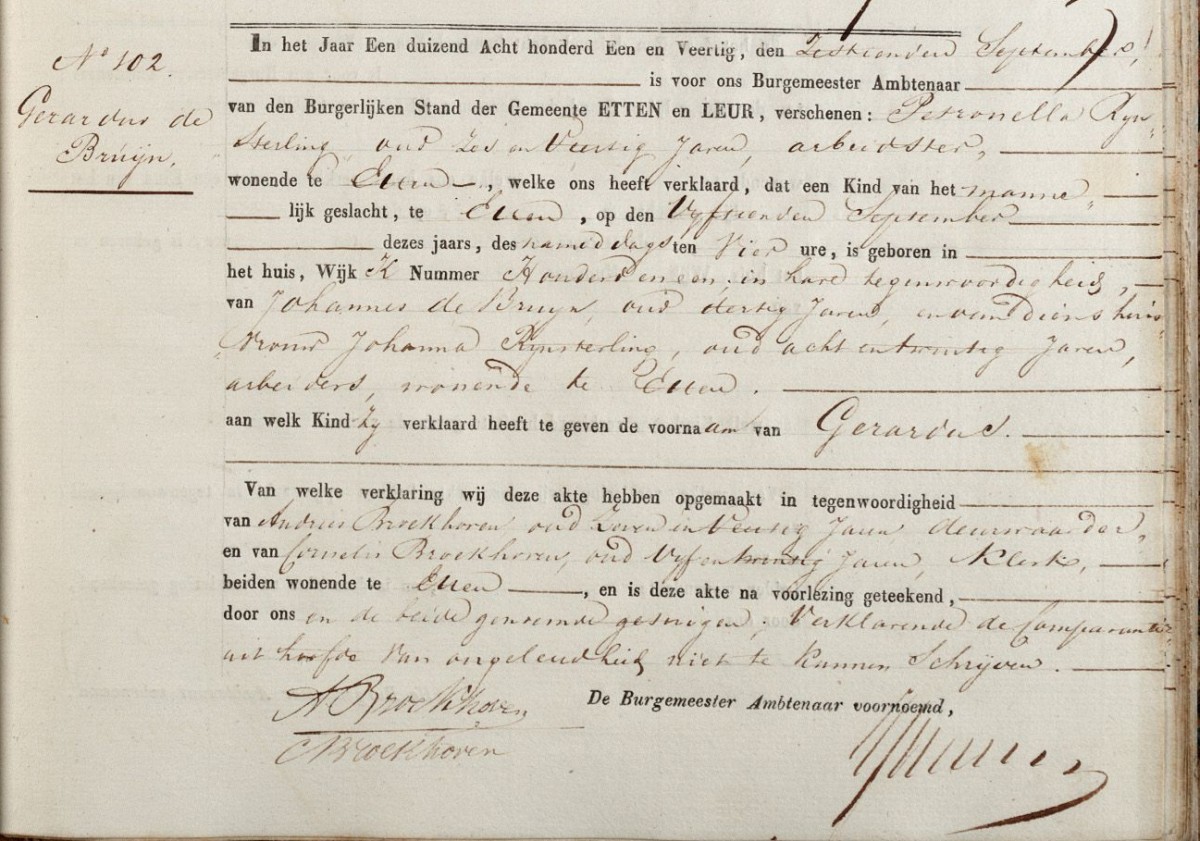 N° 102.
Gerardus de
Bruÿn.
In het Jaar Een duizend Acht honderd Een en Veertig, den Zestienden September,
is voor ons Burgemeester Ambtenaar
van den Burgerlijken Stand der Gemeente ETTEN en LEUR, verschenen: Petronella Ryn„
„sterling, oud Zes en Veertig Jaren, arbeidster„
wonende te Etten, welke ons heeft verklaard, dat een Kind van het manne„
lijk geslacht, te Etten, op den Vyftienden September
dezes jaars, des namiddags ten Vier ure, is geboren in
het huis, Wijk K Nummer Honderd en een, in hare tegenwoordigheid,
van Johannes de Bruyn, oud dertig Jaren, en van diens huis„
„vrouw Johanna Rynsterling, oud acht en twintig Jaren,
arbeiders, wonende te Etten.
aan welk Kind Zy verklaard heeft te geven de voornaam van Gerardus.
Van welke verklaring wij deze akte hebben opgemaakt in tegenwoordigheid
van Andries Broekhoven, oud Zeven en Veertig Jaren deurwaarder,
en van Cornelis Broekhoven, oud Vyf en twintig Jaren, Klerk,
beiden wonende te Etten, en is deze akte na voorlezing geteekend,
door ons en de beide genoemde getuigen, Verklarende de Comparante
uit hoofde van ongeleerdheid niet te kunnen Schrijven.
De Burgemeester Ambtenaar voornoemd,
A Broekhoven
C Broekhoven